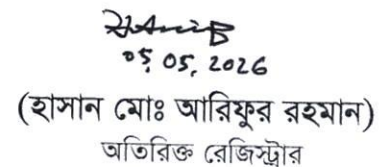 05.05.2026
(হাসান মোঃ আরিফুর রহমান)
অতিরিক্ত রেজিস্ট্রার